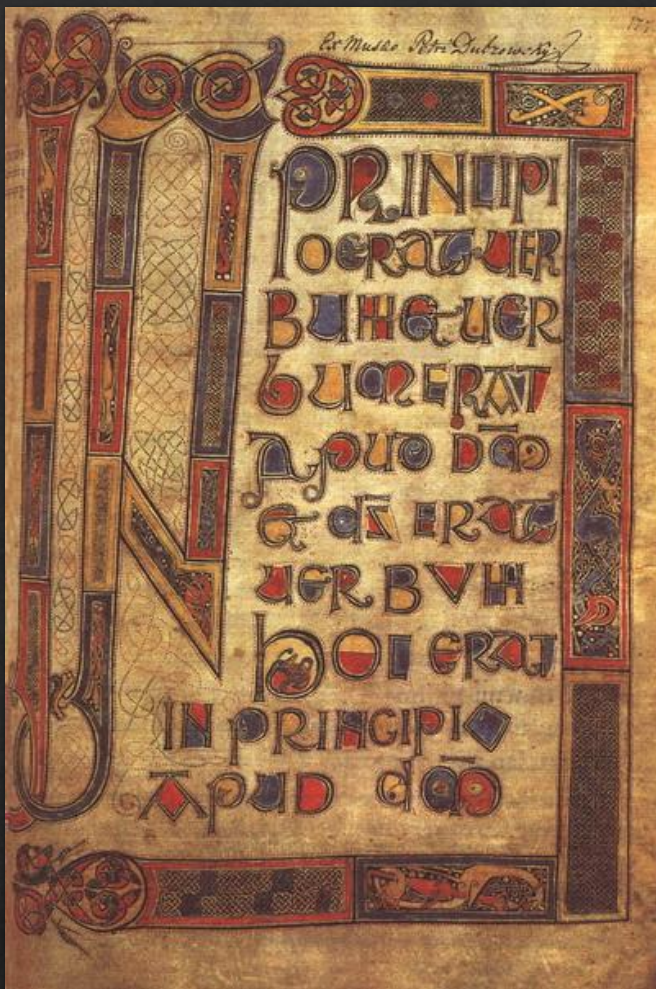 Ex Musæo Petri Dubrowsky
IN PRINCIPI
O ERAT UER
BUM ET UER
BUM ERAT
APUD DM̄
ET DS̄ ERAT
UERBVM
HOC ERAT
IN PRINCIPIO
APUD DM̄